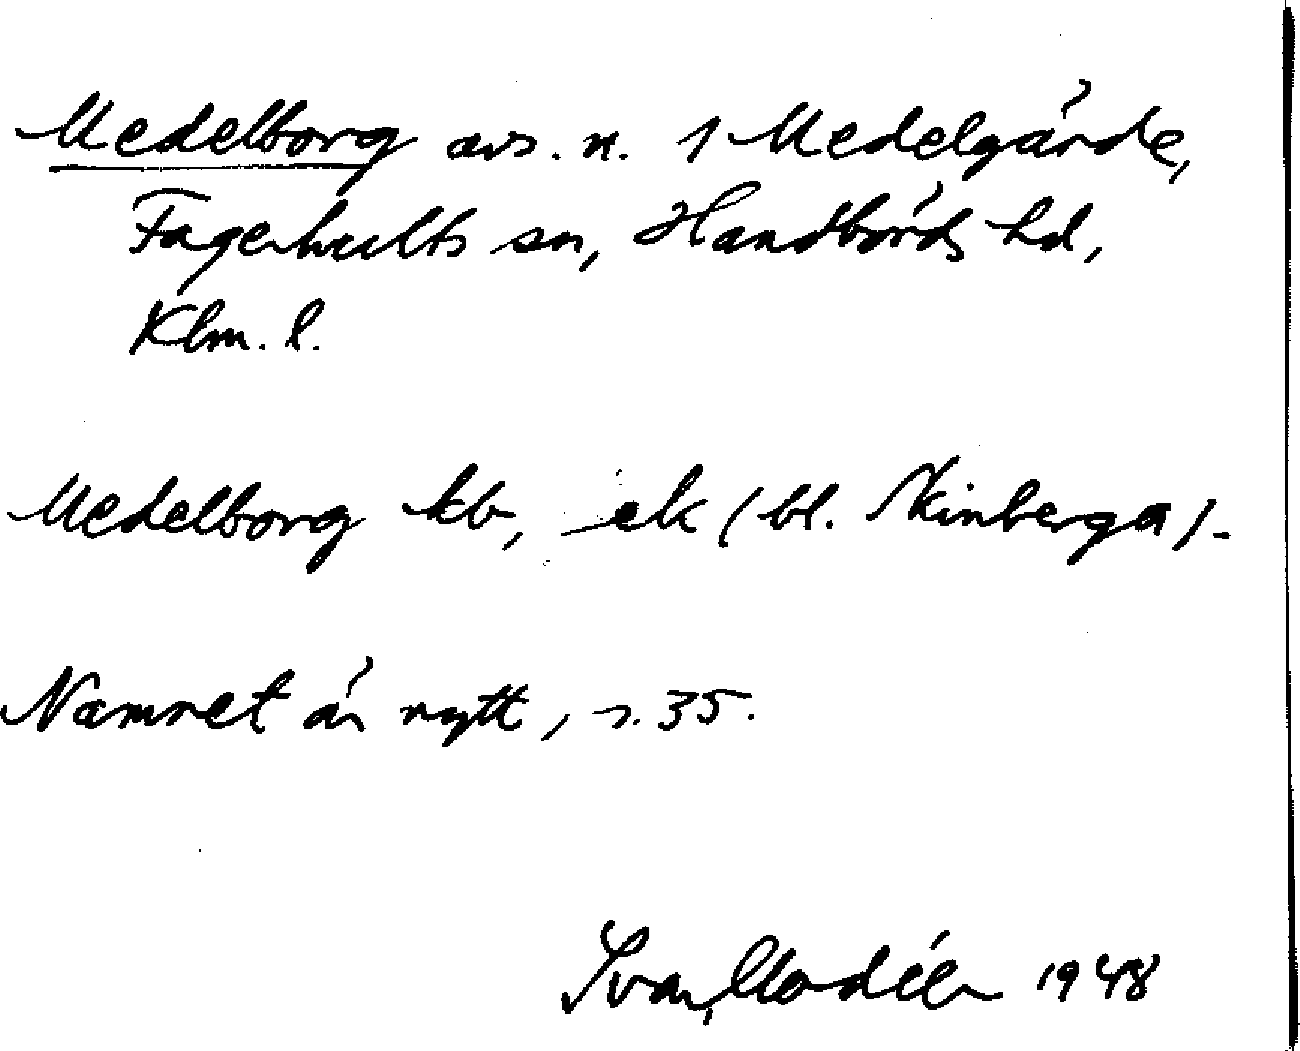 Medelborg avs. n. 1 Medelgärde,
Fagerhults sn, Handbörds hd,
Klm. l.
Medelborg kb, ek (bl.
Namnet är nytt, s. 35.
Ivar Modéer 1948